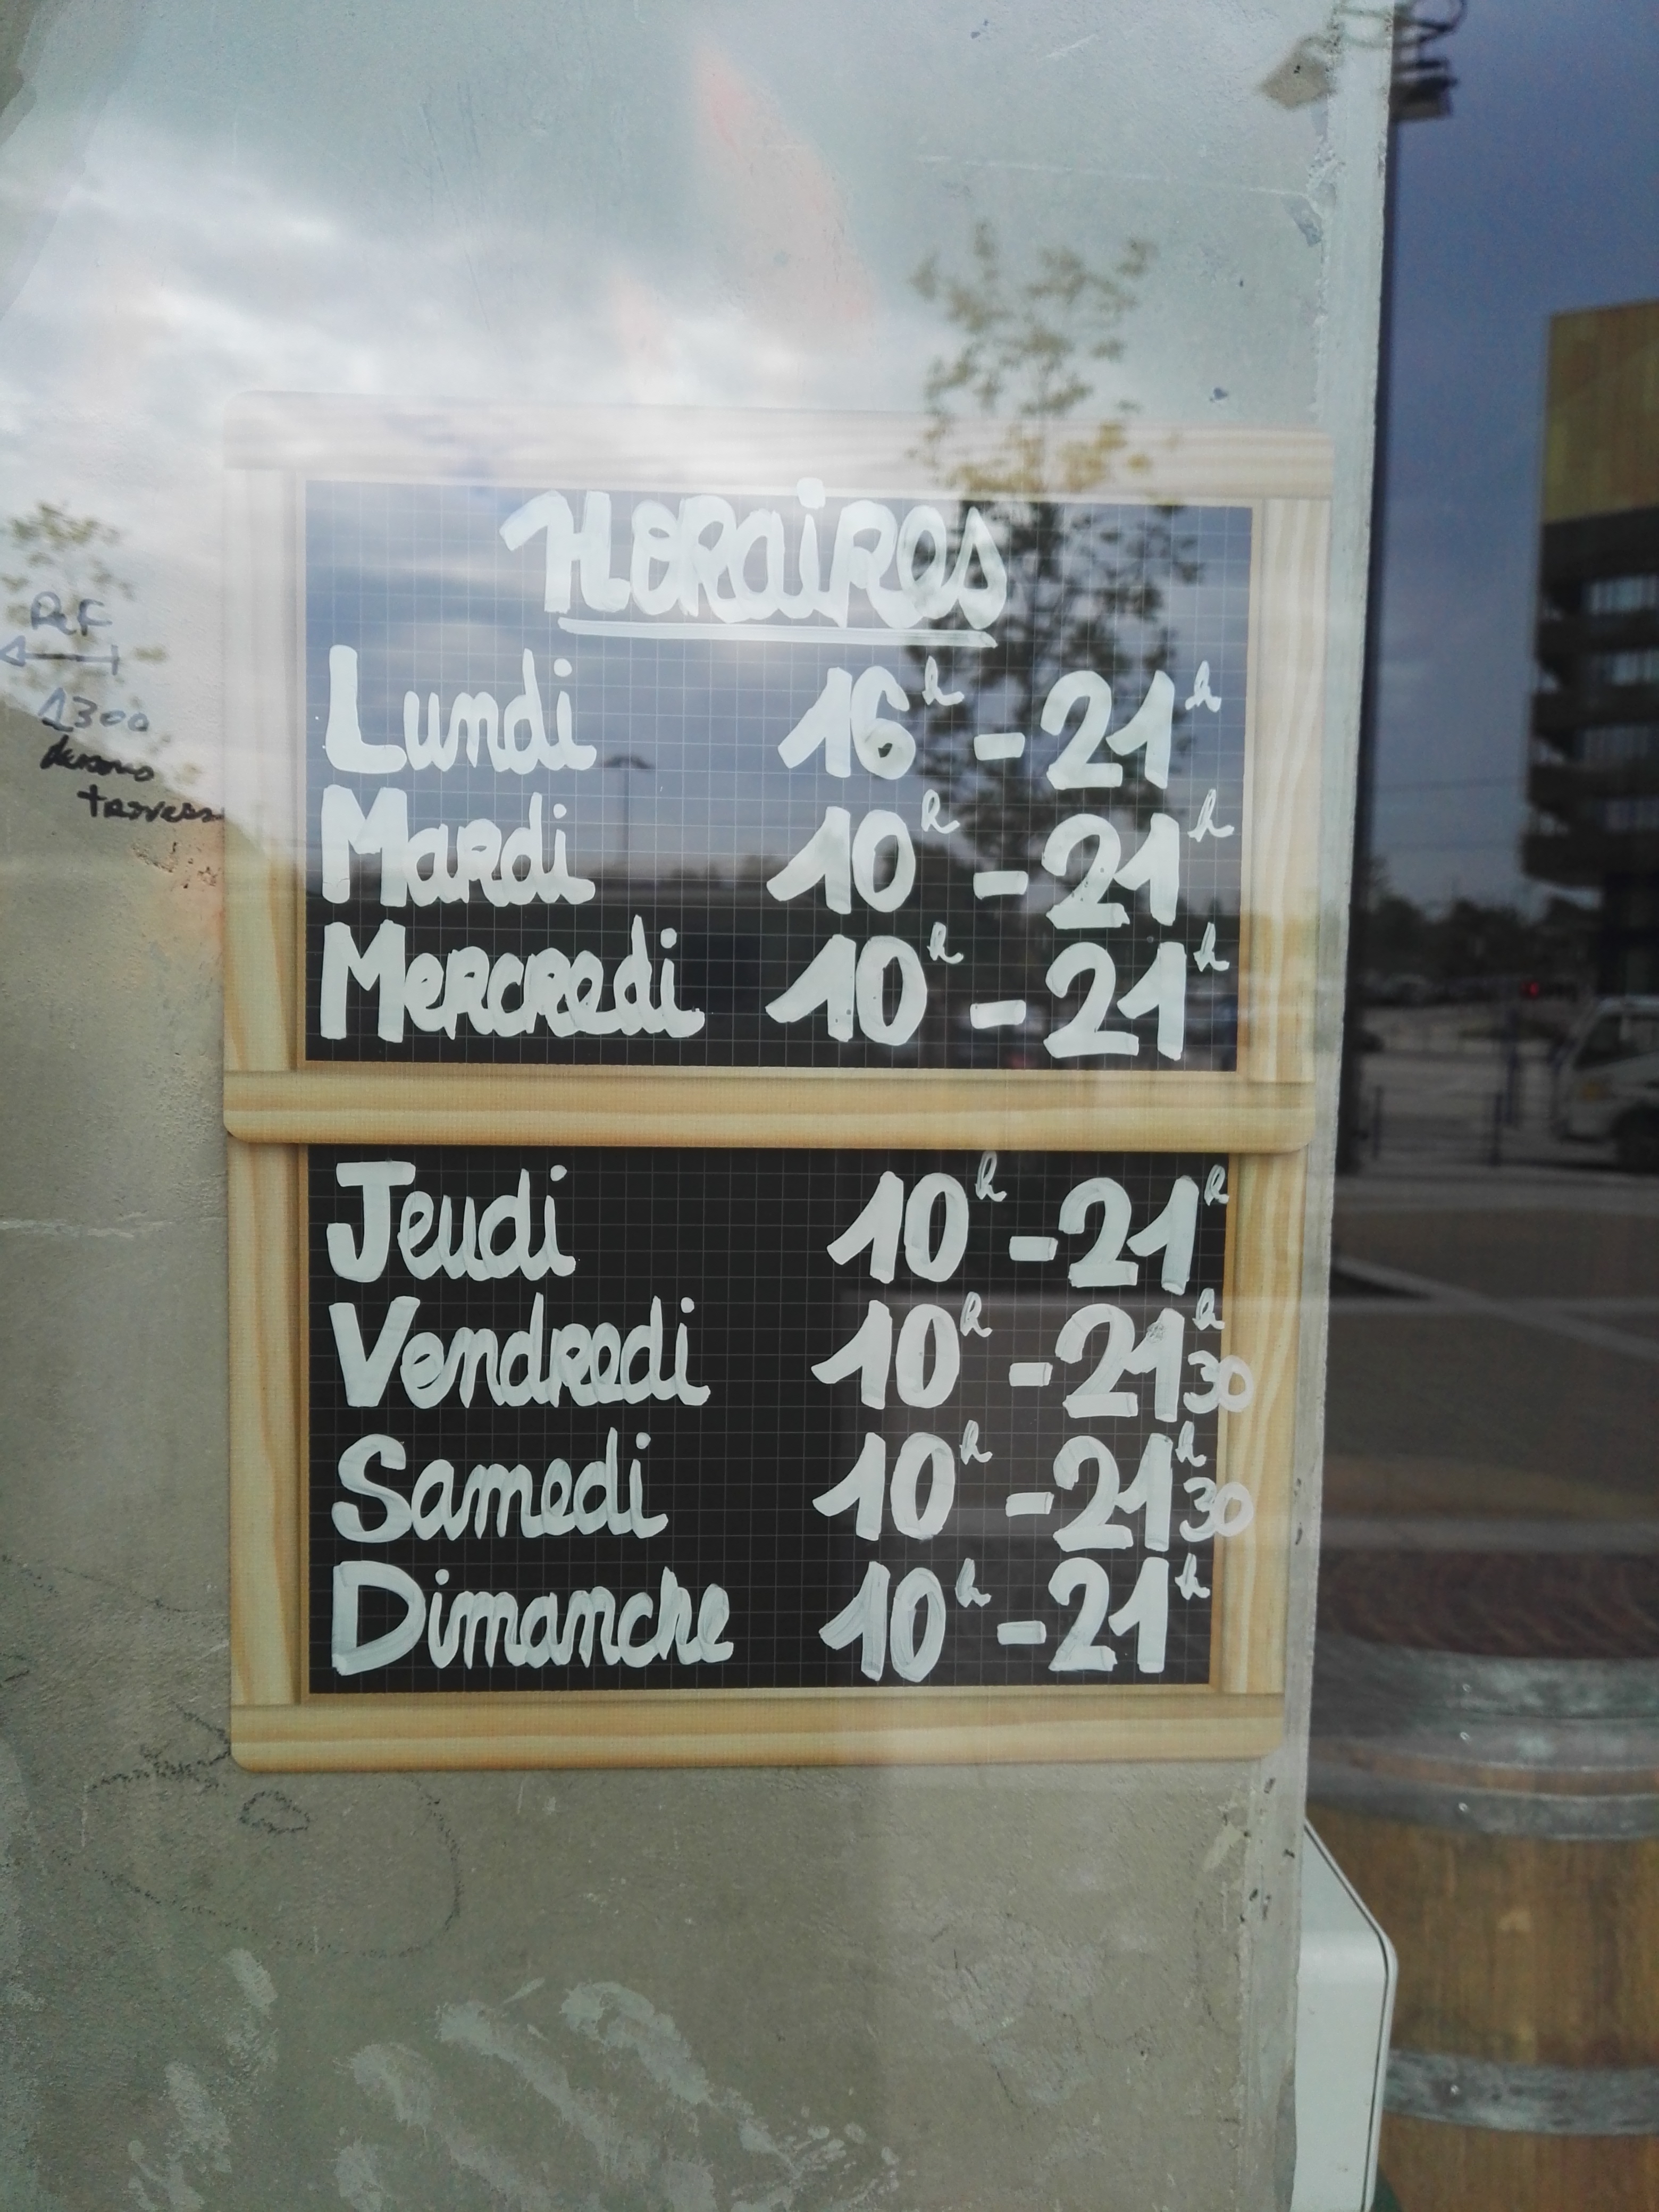 Horaires
Lundi 16h - 21h
Mardi 10h - 21h
Mercredi 10h - 21h
Jeudi 10h - 21h
Vendredi 10h - 21h30
Samedi 10h - 21h30
Dimanche 10h - 21h
Ref
1300